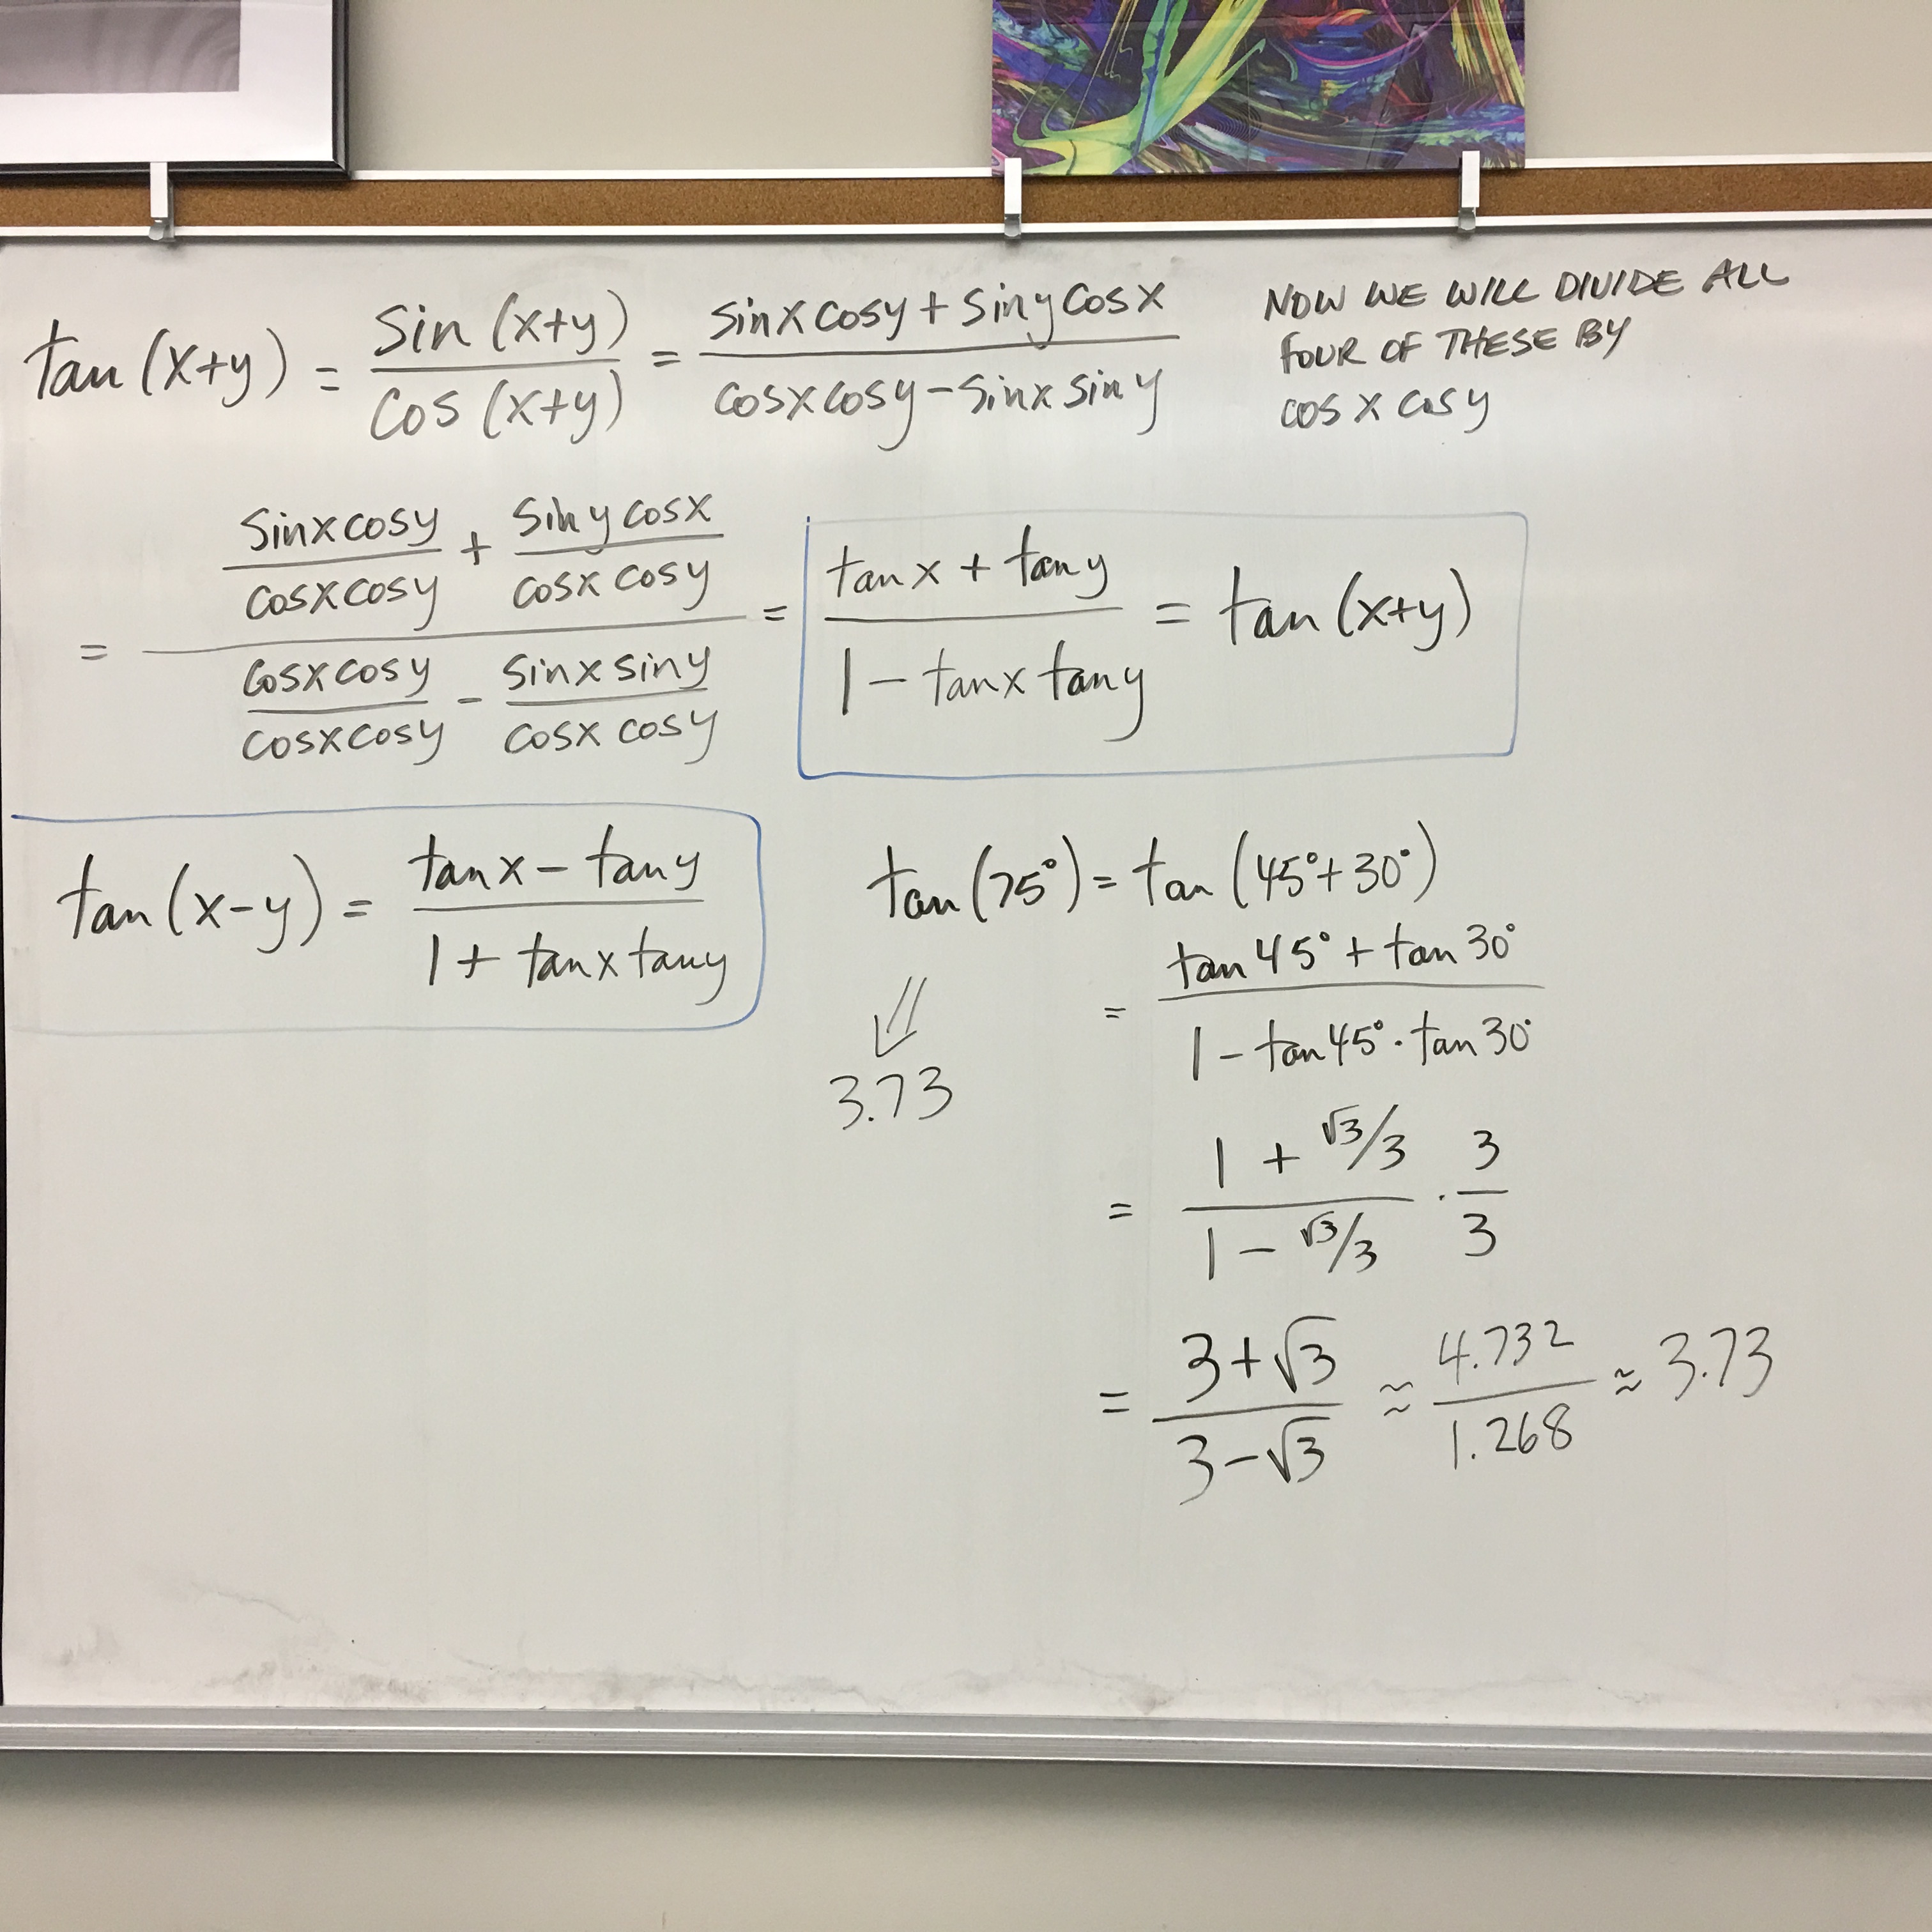 tan (x+y) = sin (x+y) / cos (x+y) = sinx cosy + siny cosx / cosx cosy - sinx siny
NOW WE WILL DIVIDE ALL
FOUR OF THESE BY
cos x cos y
= sinx cosy / cosx cosy + siny cosx / cosx cosy / cosx cosy / cosx cosy - sinx siny / cosx cosy = tanx + tany / 1 - tanx tany = tan (x+y)
tan (x-y) = tanx - tany / 1 + tanx tany
tan (75°) = tan (45°+30°)
= tan 45° + tan 30° / 1 - tan 45° · tan 30°
3.73
= 1 + √3/3 / 1 - √3/3 · 3/3
= 3+√3 / 3-√3 ≈ 4.732 / 1.268 ≈ 3.73